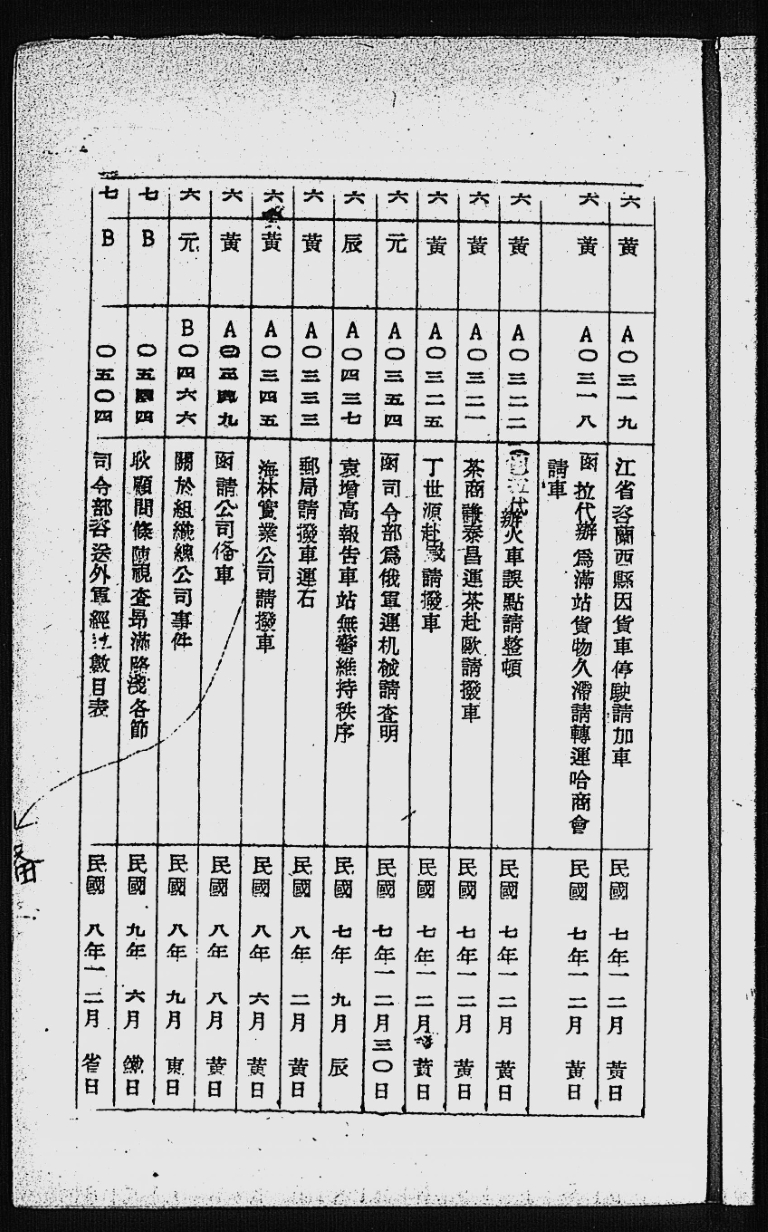 六 黃 A〇三一九 江省咨蘭西縣因貨車停駛請加車 民國 七年一二月 黃日
六 黃 A〇三一八 函拉代辦為滿站貨物久滯請轉運哈商會
請車 民國 七年一二月 黃日
六 黃 A〇三二二 拉代辦火車誤點請整頓 民國 七年一二月 黃日
六 黃 A〇三二一 茶商謙泰昌運茶赴歐請撥車 民國 七年一二月 黃日
六 黃 A〇三二五 丁世源赴 請撥車 民國 七年一二月 黃日
六 元 A〇三五四 函司令部為俄軍運机械請查明 民國 七年一二月三〇日
六 辰 A〇四三七 袁增高報告車站無警維持秩序 民國 七年 九月 辰
六 黃 A〇三三三 郵局請撥車運石 民國 八年 二月 黃日
六 黃 A〇三四五 海林實業公司請撥車 民國 八年 六月 黃日
六 黃 A〇三四九 函請公司備車 民國 八年 八月 黃日
六 元 B〇四六六 關於組織總公司事件 民國 八年 九月 東日
七 B 〇五四四 耿顧問條陳視查昂滿路淺各節 民國 九年 六月 日
七 B 〇五〇四 司令部咨送外軍經 數目表 民國 八年一二月 省日
备